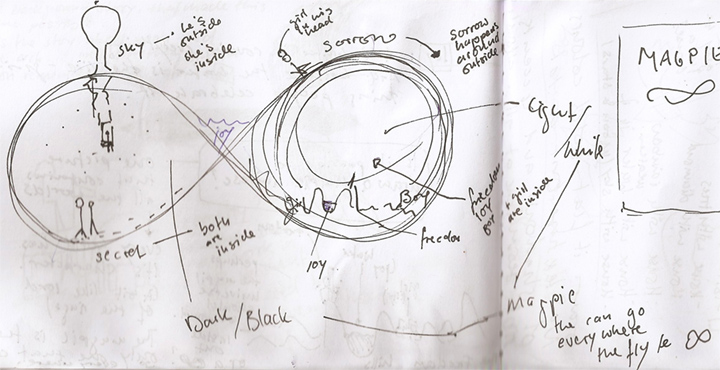 sky
he's
outside
she's
inside
girl
his
head
Sorrow
sorrow
happens
around
outside
MAGPIE
∞
joy
Light
White
both
are
inside
secret
girl
Boy
joy
freedom
joy
boy
girl
are inside
Dark/Black
magpie
the can go
everywhere
the fly
∞